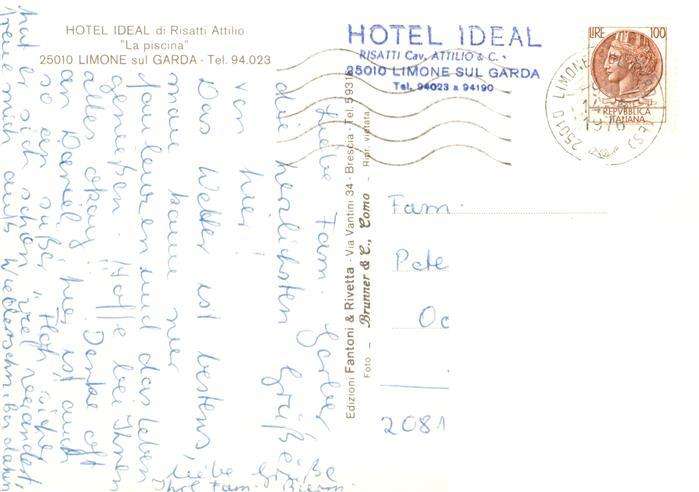 HOTEL IDEAL di Risatti Attilio
"La piscina"
25010 LIMONE sul GARDA - Tel. 94.023
HOTEL IDEAL
RISATTI Cav. ATTILIO & C.
25010 LIMONE SUL GARDA
Tel. 94023 e 94190
LIRE 100
REPVBBLICA
ITALIANA
25010 LIMONE
1976
Edizioni Fantoni & Rivetta - Via Vantini 34 - Brescia - Tel. 59316
Foto - Brunner & C., Como - Ripr. vietata
Liebe Fam.
die herzlichsten Grüße
von hier.
Das Wetter ist bestens
man kann hier
faulenzen und das Leben
genießen. Hoffe bei Ihnen
alles okay. Denke oft
an Daniel, hier ist auch
so ein süßer.
hat er sich schon
freue mich aufs Wiedersehn
Liebe Grüße
Ihre Fam.
Fam.
Pete
Oc
2081